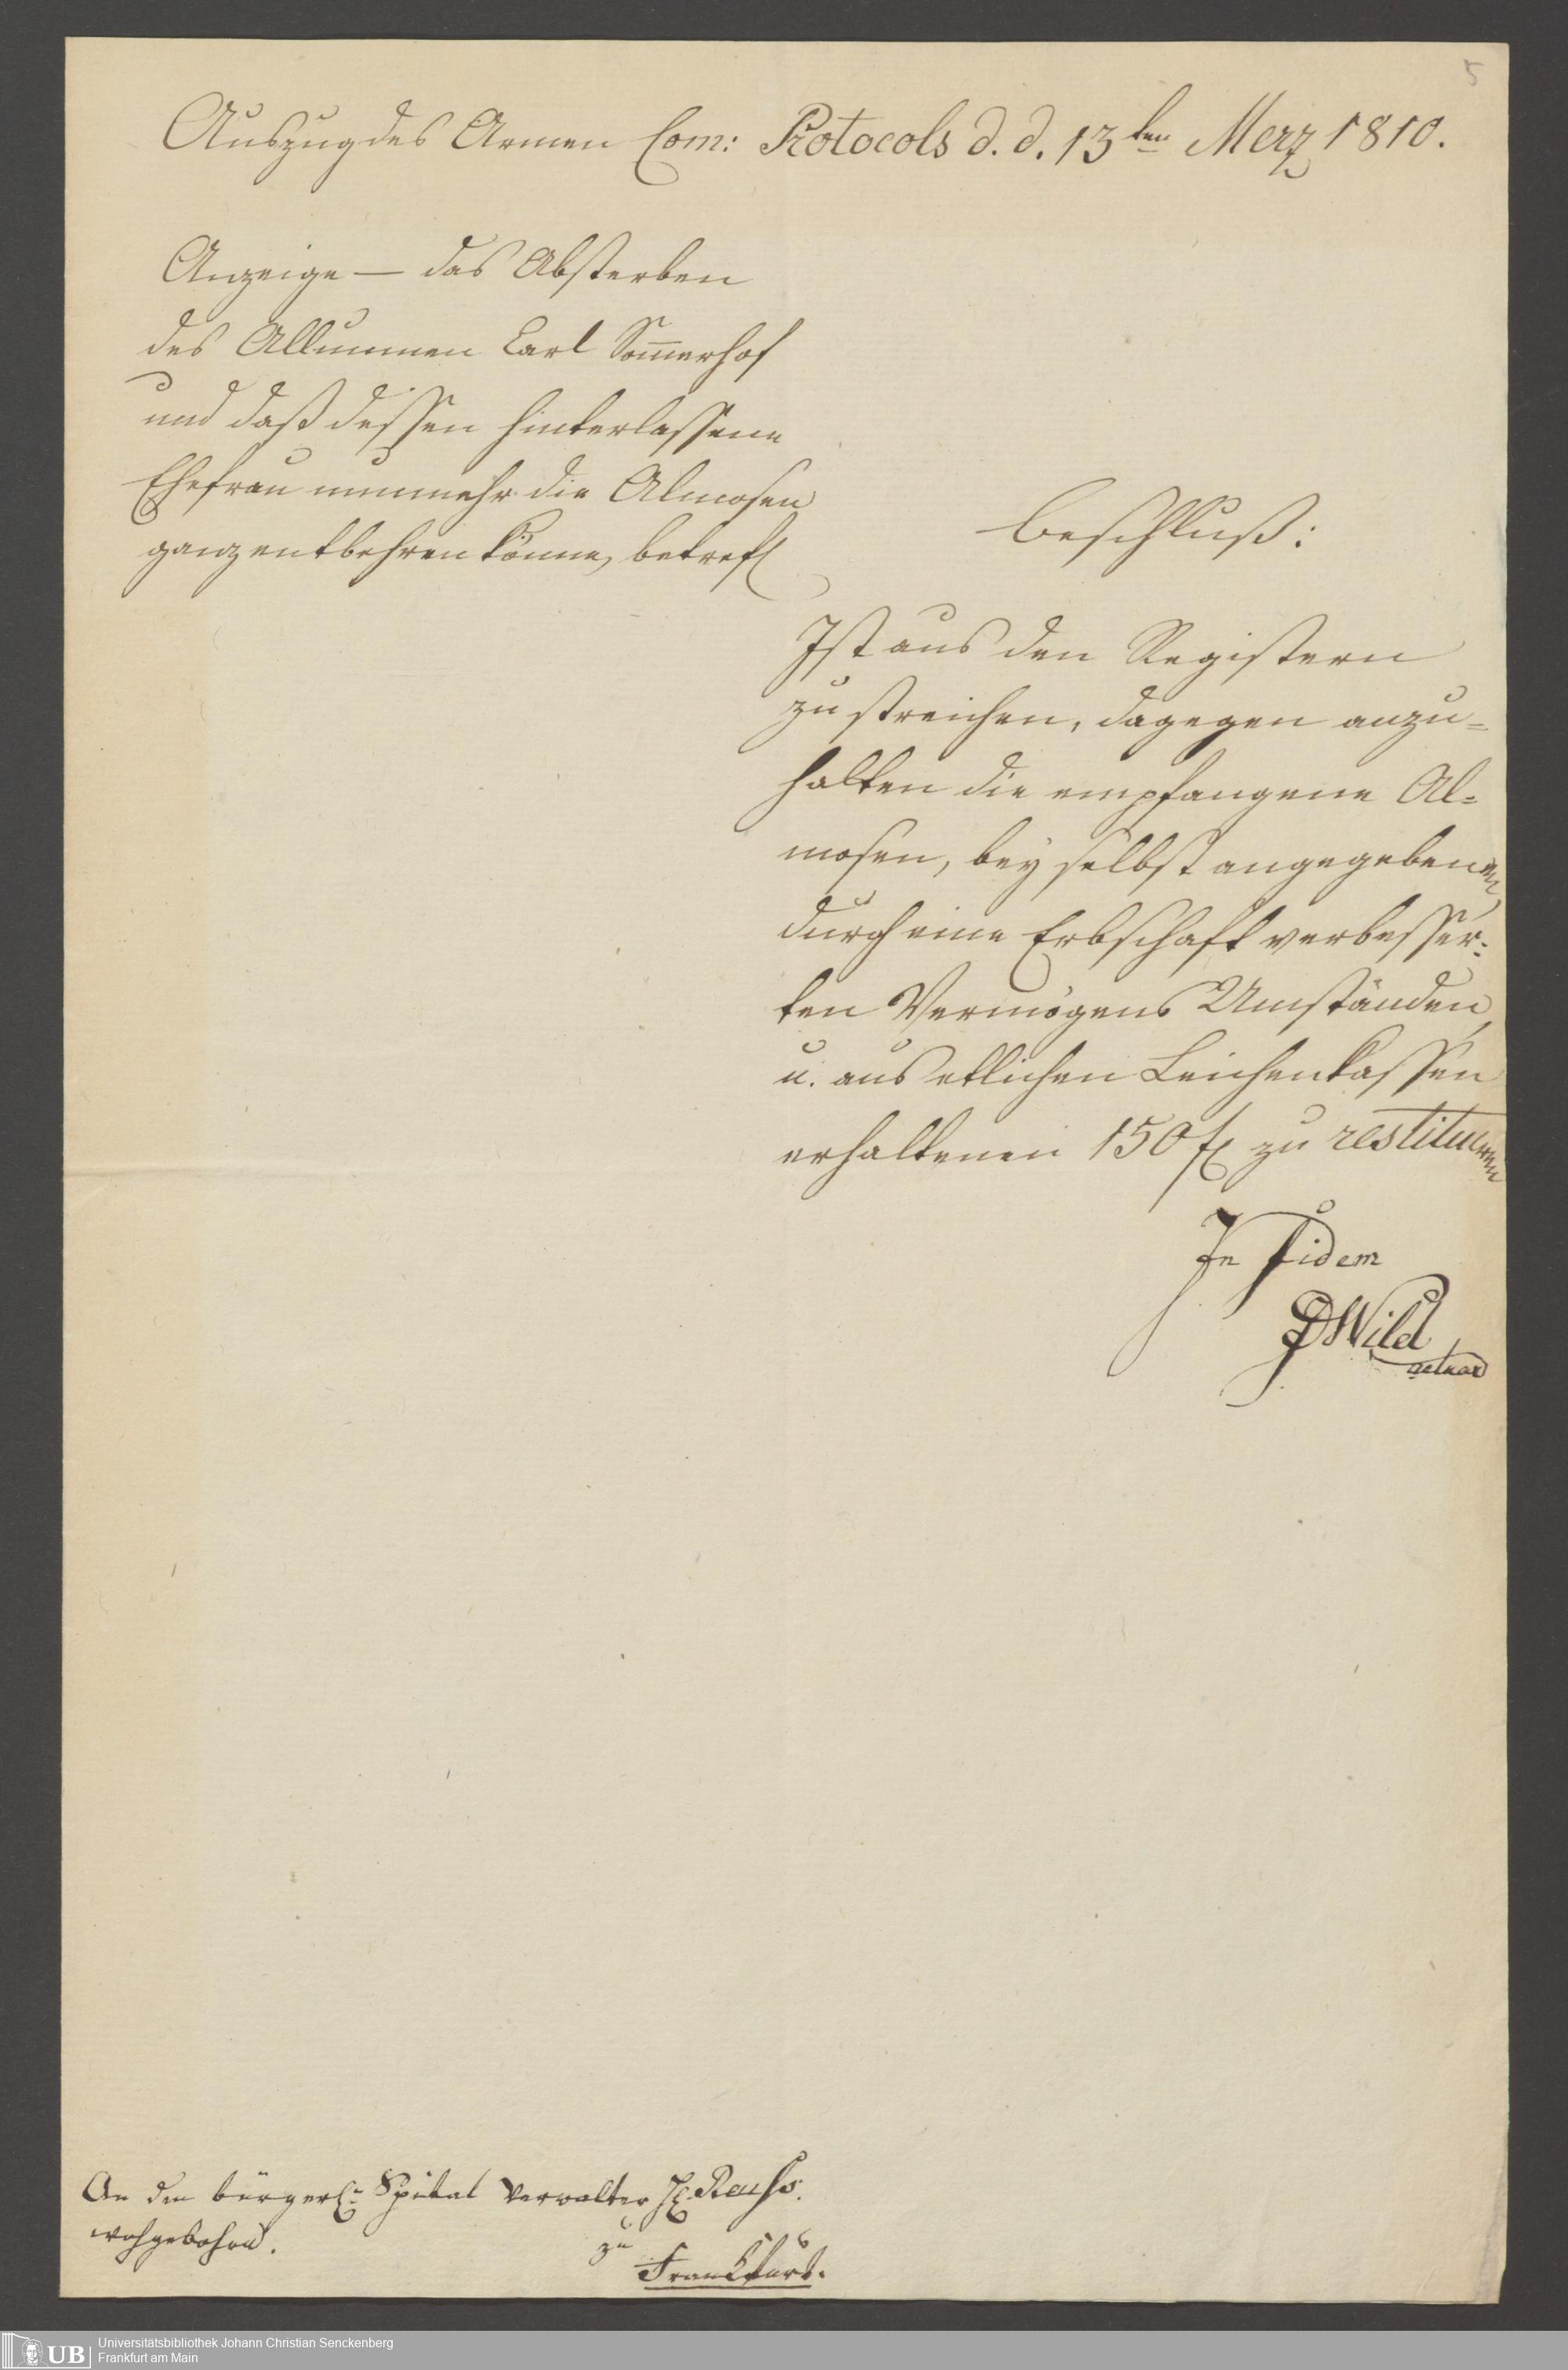 5
Auszug des Armen Com: Protocols d. d. 13ten Merz 1810.
Anzeige — das Absterben
des Allumnen Carl Som̄erhof
und daß dessen hinterlassene
Ehefrau nunmehr die Almosen
ganz entbehren könne, betref
Beschluß:
Ist aus den Registern
zu streichen, dagegen anzu=
halten die empfangene Al=
mosen, bey selbst angegebenen
durch eine Erbschaft verbesser=
ten Vermögens Umständen,
u. aus etlichen Leichenkassen
erhaltenen 150 f zu restituiren
In Fidem
Wild
actuar
An den bürgerl: Spital Verwalter H. Reuss.
wohgebohrn.
zu
Frankfurt.
UB
Universitätsbibliothek Johann Christian Senckenberg
Frankfurt am Main